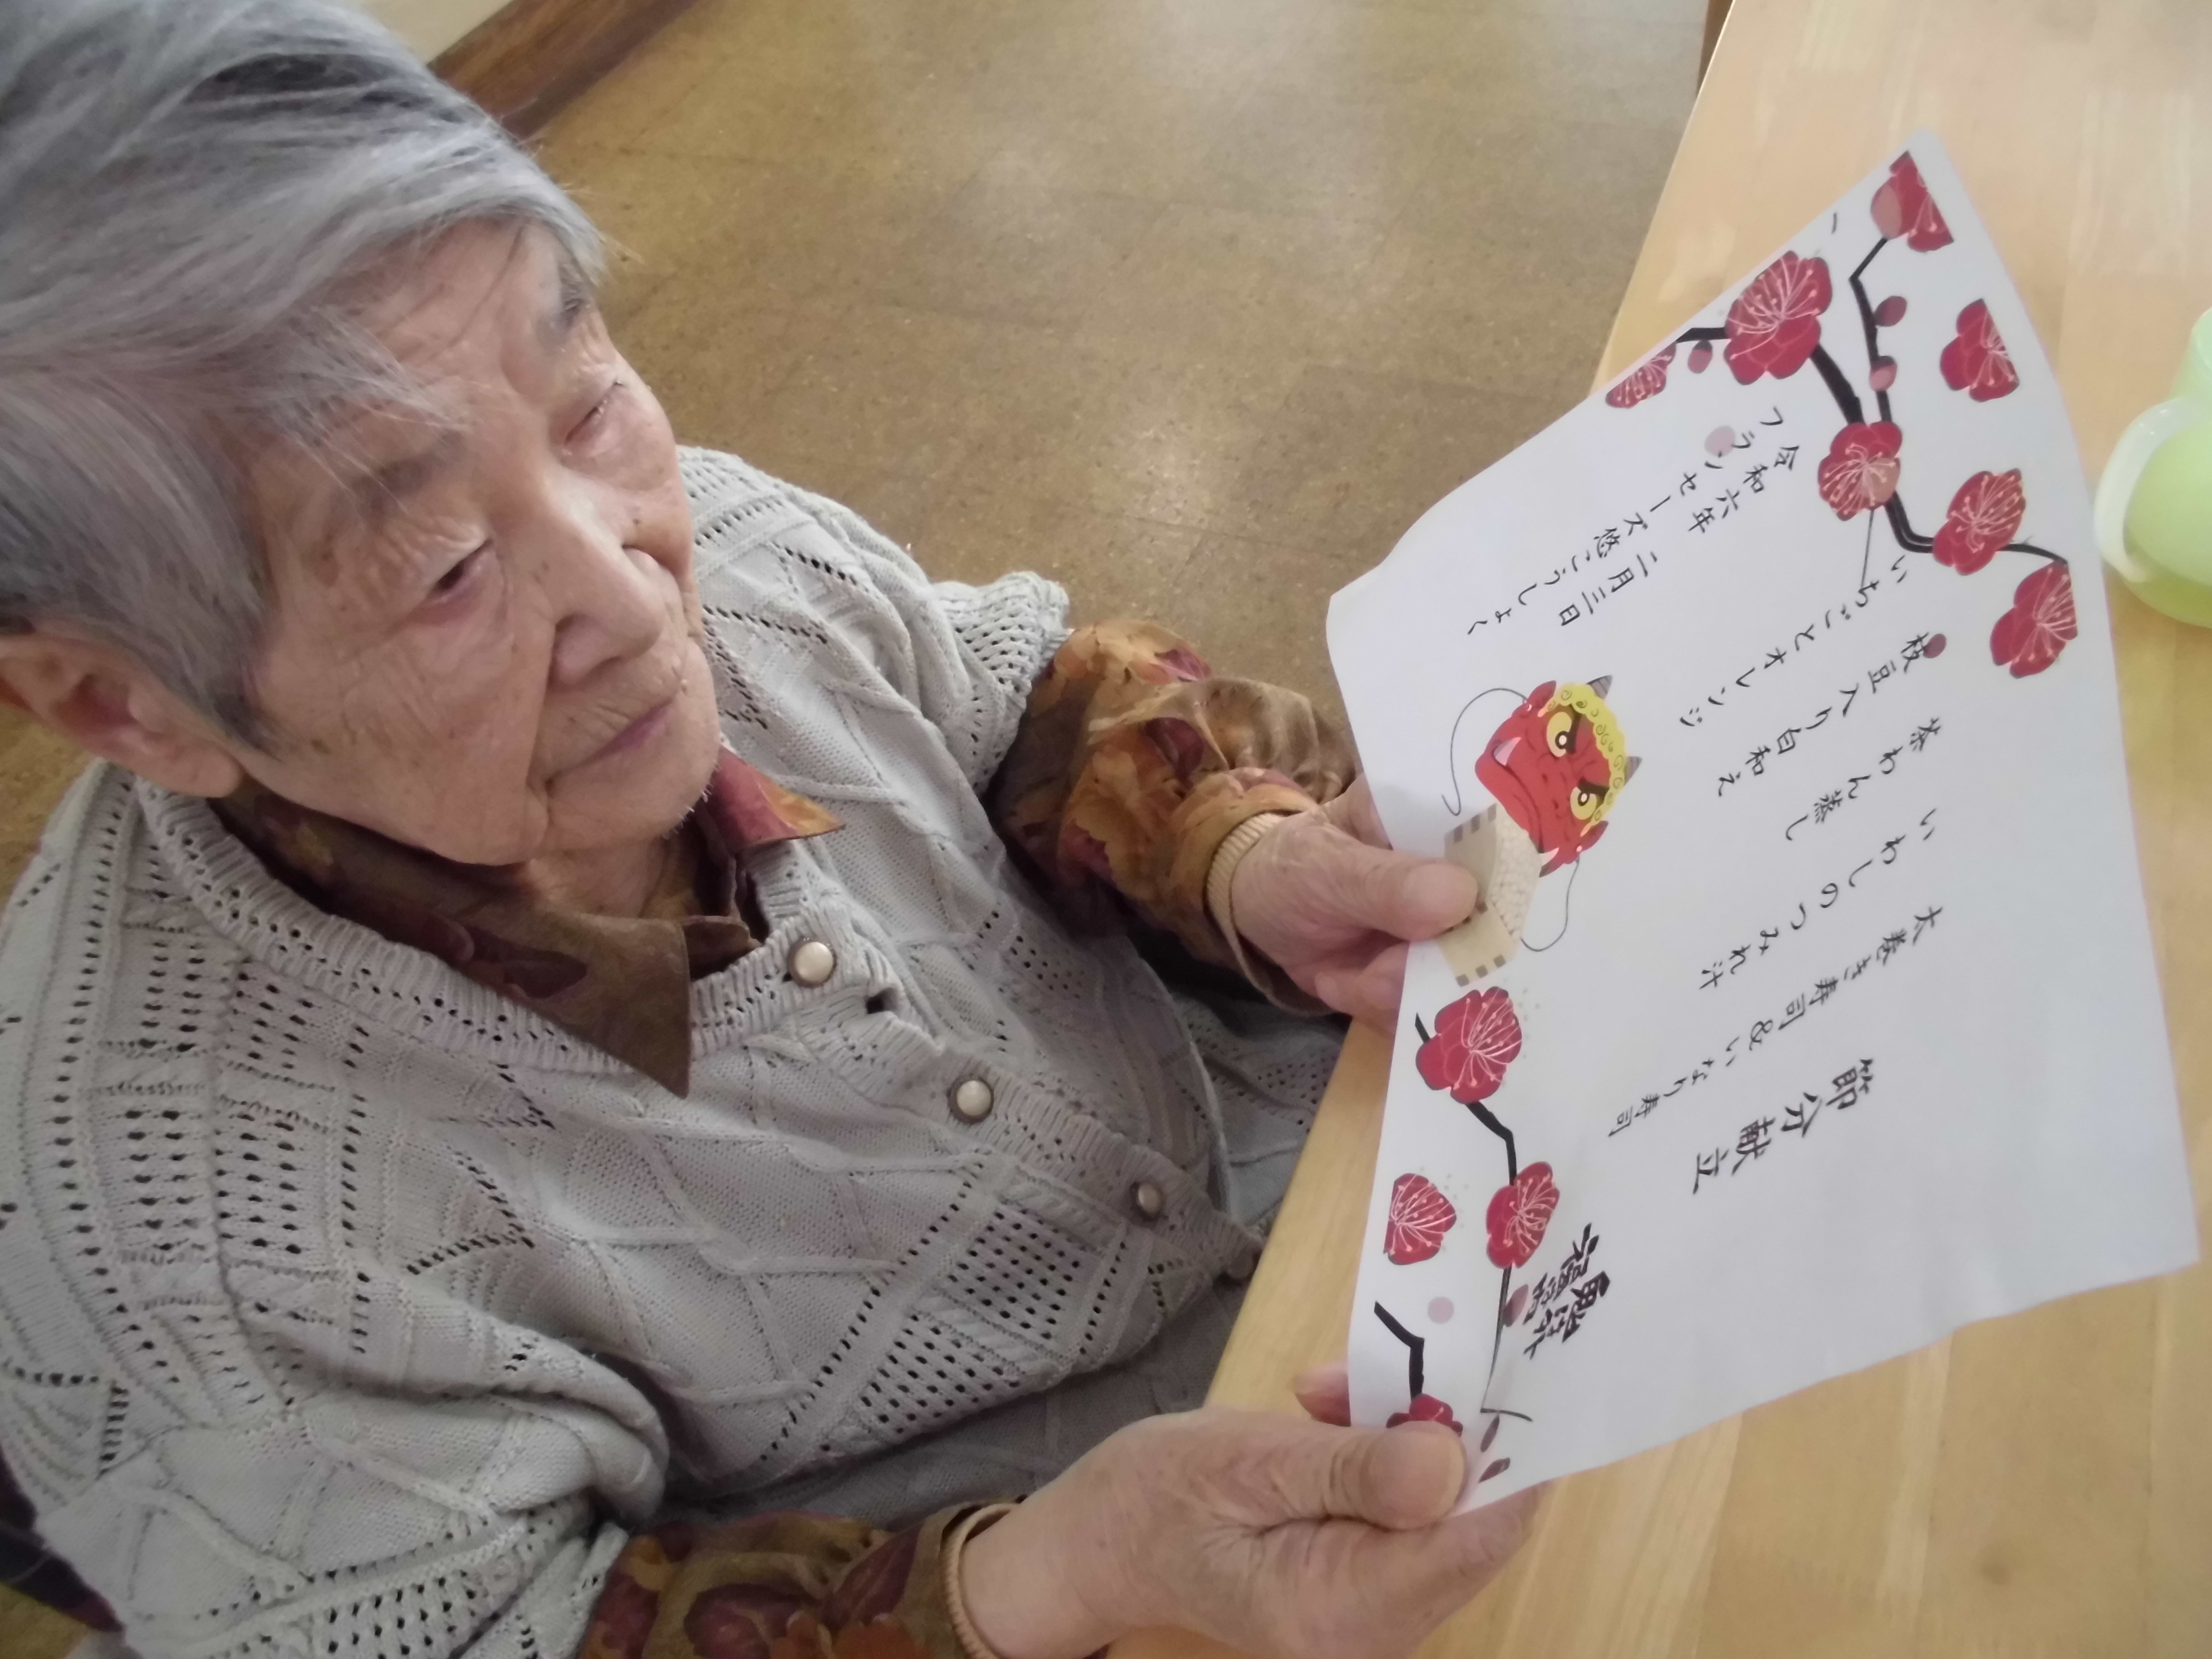 節分献立
太巻き寿司&いなり寿司
いわしのつみれ汁
茶わん蒸し
枝豆入り白和え
いちごとオレンジ
令和六年 二月三日
フランセーズ悠こうしょく